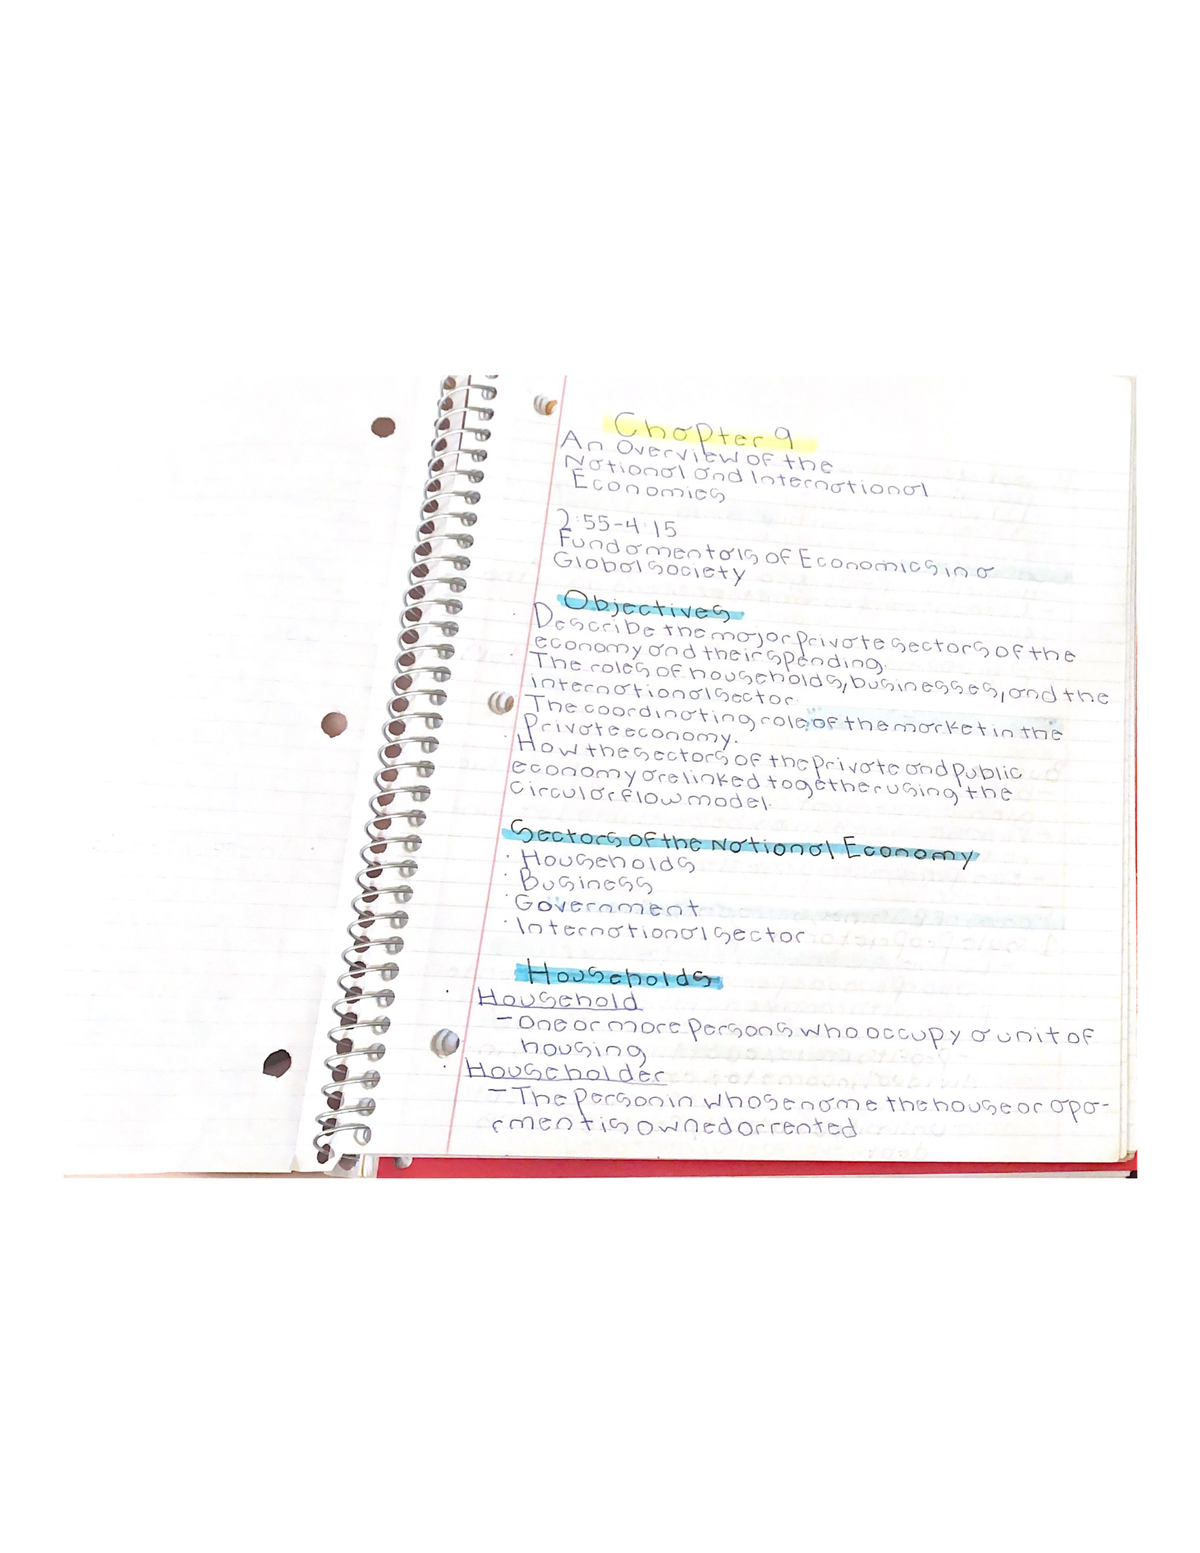 Chapter 9
An Overview of the
National and International
Economics
2:55-4:15
Fundamentals of Economics in a
Global Society
Objectives
· Describe the major private sectors of the
economy and their spending.
· The roles of households, businesses, and the
international sector.
· The coordinating role of the market in the
Private economy.
· How the sectors of the private and public
economy are linked together using the
circular flow model.
Sectors of the National Economy
· Households
· Business
· Government
· International sector
Households
· Household
- One or more persons who occupy a unit of
housing
· Householder
- The person in whose name the house or apa-
rment is owned or rented